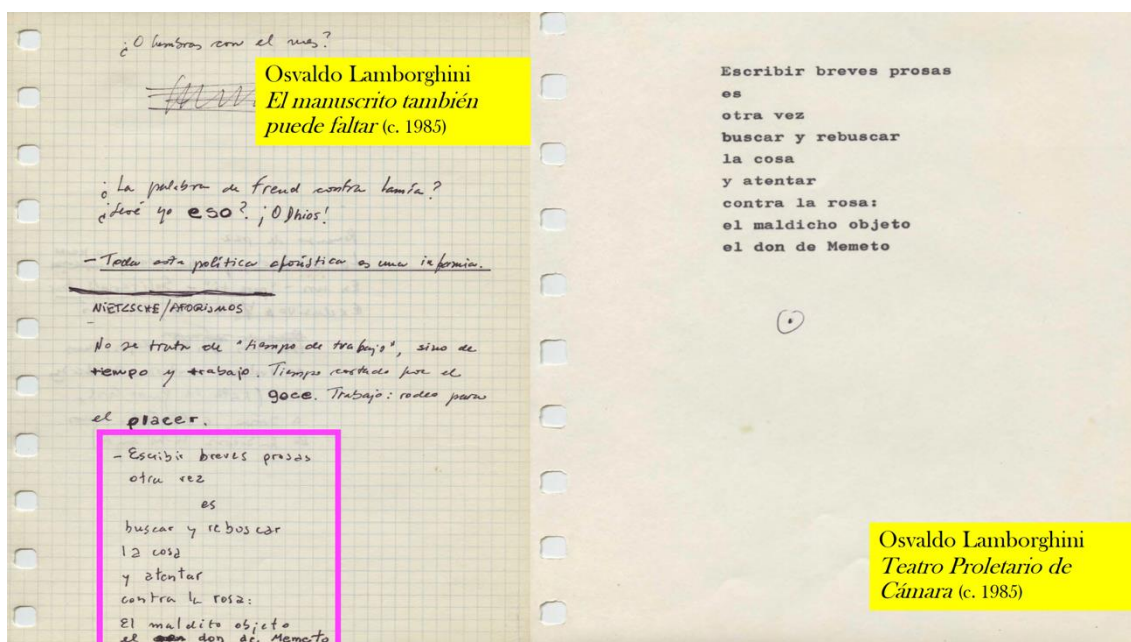 ¿O hembras con el mes?
Osvaldo Lamborghini
El manuscrito también
puede faltar (c. 1985)
¿La palabra de Freud contra Lamía?
¿Seré yo eso? ¡O Dhios!
- Toda esta política aforística es una infamia.
NIETZSCHE/AFORISMOS
No se trata de "tiempo de trabajo", sino de
tiempo y trabajo. Tiempo cortado por el
goce. Trabajo: rodeo para
el placer.
- Escribir breves prosas
otra vez
es
buscar y rebuscar
la cosa
y atentar
contra la rosa:
El maldito objeto
el don de Memeto
Escribir breves prosas
es
otra vez
buscar y rebuscar
la cosa
y atentar
contra la rosa:
el maldicho objeto
el don de Memeto
Osvaldo Lamborghini
Teatro Proletario de
Cámara (c. 1985)